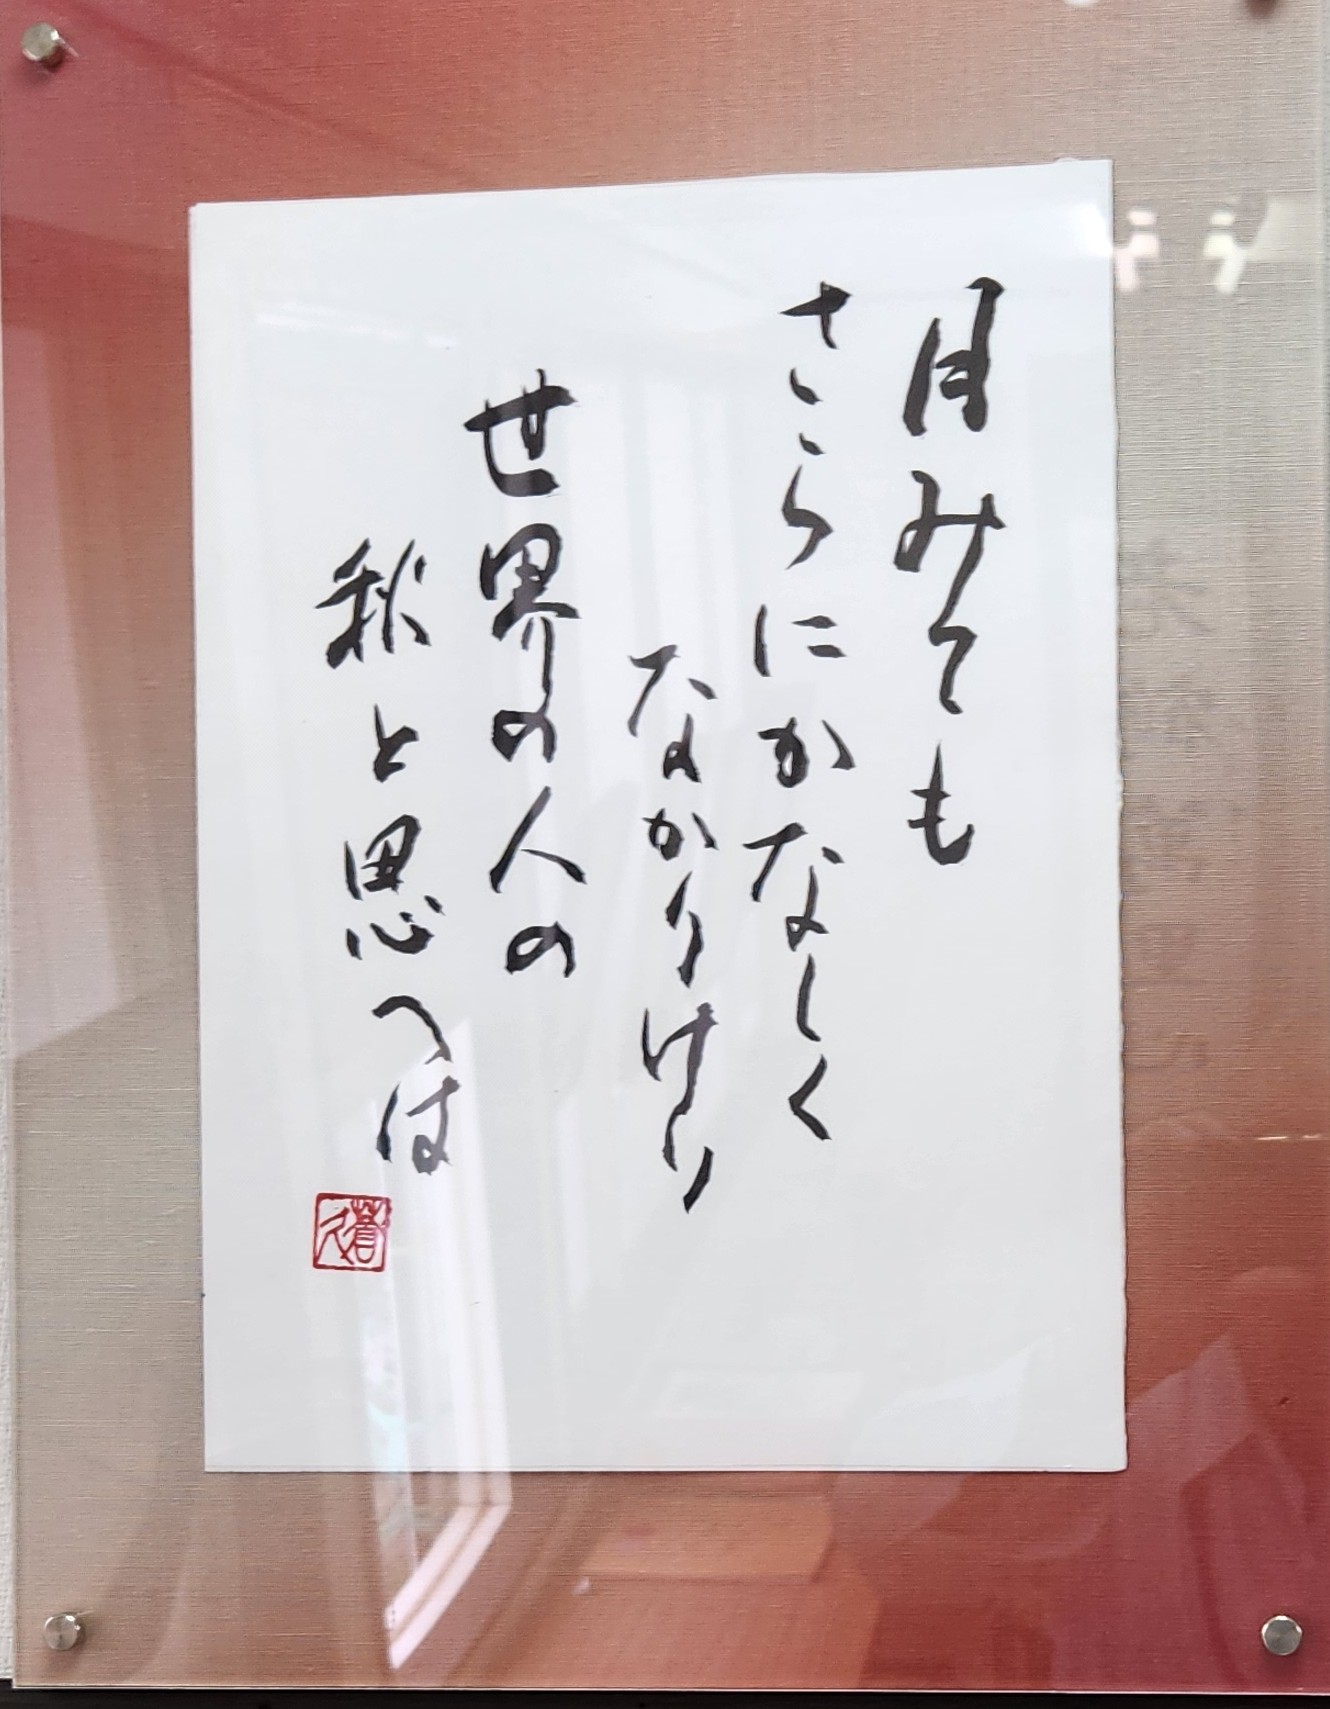 月みても
さらにかなしく
なかりけり
世界の人の
秋と思へは
蒼